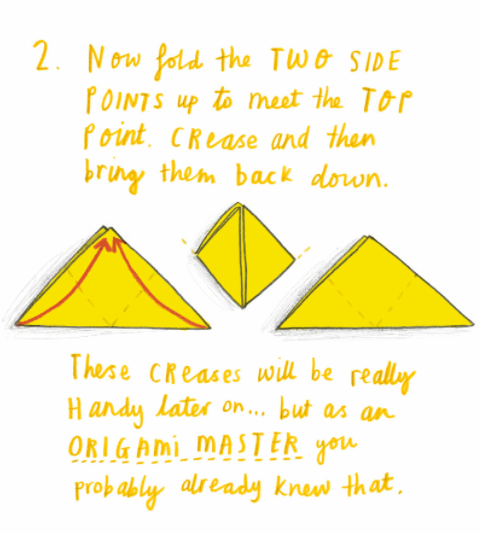 2. Now fold the TWO SIDE
POINTS up to meet the TOP
Point. CRease and then
bring them back down.
These CReases will be really
Handy later on... but as an
ORIGAMi MASTER you
probably already knew that.